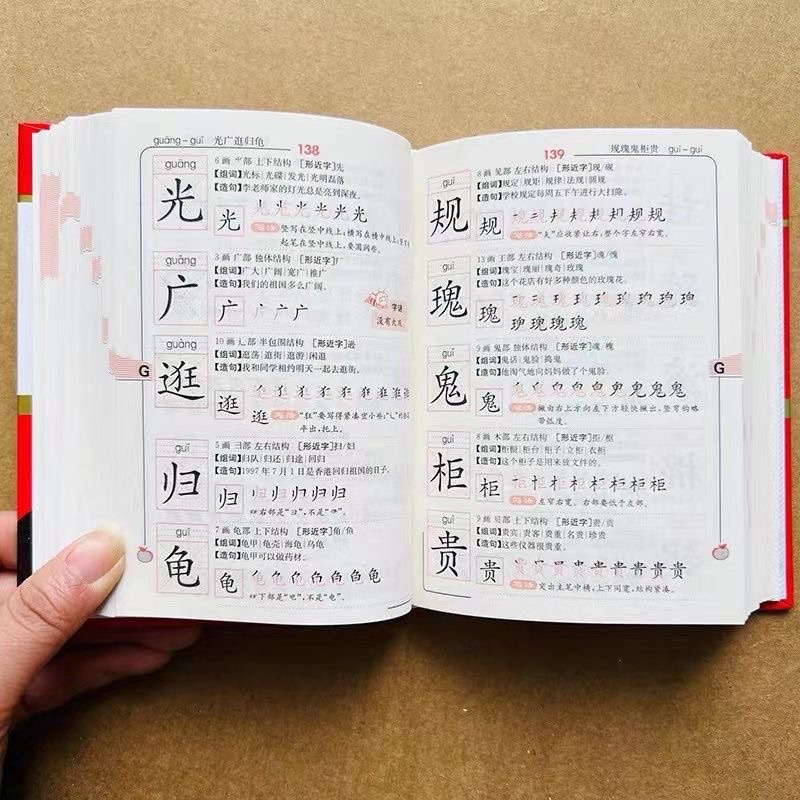 guāng-guī 光广逛归龟 138
guāng
光
6画 ⺌部 上下结构 [形近字]先
[组词]光标|光碟|发光|光明磊落
[造句]李老师家的灯光总是亮到深夜。
光
写法 竖写在竖中线上;横写在横中线上;
起笔在竖中线上,要圆润些。
guǎng
广
3画 广部 独体结构 [形近字]厂
[组词]广大|广阔|宽广|推广
[造句]我们的祖国多么广阔。
广
字谜
没有大氏
guàng
逛
10画 辶部 半包围结构 [形近字]逊
[组词]逛荡|逛街|逛游|闲逛
[造句]我和同学相约明天一起去逛街。
逛
逛 写法 “狂”要写得紧凑宜小些;“辶”的
平出,托上。
guī
归
5画 彐部 左右结构 [形近字]扫/妇
[组词]归队|归还|归途|回归
[造句]1997年7月1日是香港回归祖国的日子。
归
右部是“彐”,不是
guī
龟
7画 龟部 上下结构 [形近字]角/鱼
[组词]龟甲|龟壳|海龟|乌龟
[造句]龟甲可以做药材。
龟
下部是“电”,不是“电”。
G
139 规瑰鬼柜贵 guī-guì
guī
规
8画 见部 左右结构 [形近字]现/砚
[组词]规定|规矩|规律|法规|圆规
[造句]学校规定每周五下午进行大扫除。
规
写法 “夫”应收紧让右,整个字左窄右宽。
guī
瑰
13画 王部 左右结构 [形近字]魂/愧
[组词]瑰宝|瑰丽|瑰奇|玫瑰
[造句]这个花店有好多种颜色的玫瑰花。
瑰
guǐ
鬼
9画 鬼部 独体结构 [形近字]魂/槐
[组词]鬼话|鬼脸|捣鬼
[造句]法淘气地向妈妈做了个鬼脸。
鬼
写法 撇由右上方向左下方轻快撇出,竖弯钩略
带弧度。
guì
柜
8画 木部 左右结构 [形近字]拒/枢
[组词]柜橱|柜台|柜子|立柜|衣柜
[造句]这个柜子是用来放文件的。
柜
写法 左窄右宽。右部要低于左部。
guì
贵
9画 贝部 上下结构 [形近字]责/贡
[组词]贵宾|贵客|贵重|名贵|珍贵
[造句]这些仪器很贵重。
贵
写法 突出主笔中横,上下同宽,结构紧凑。
G